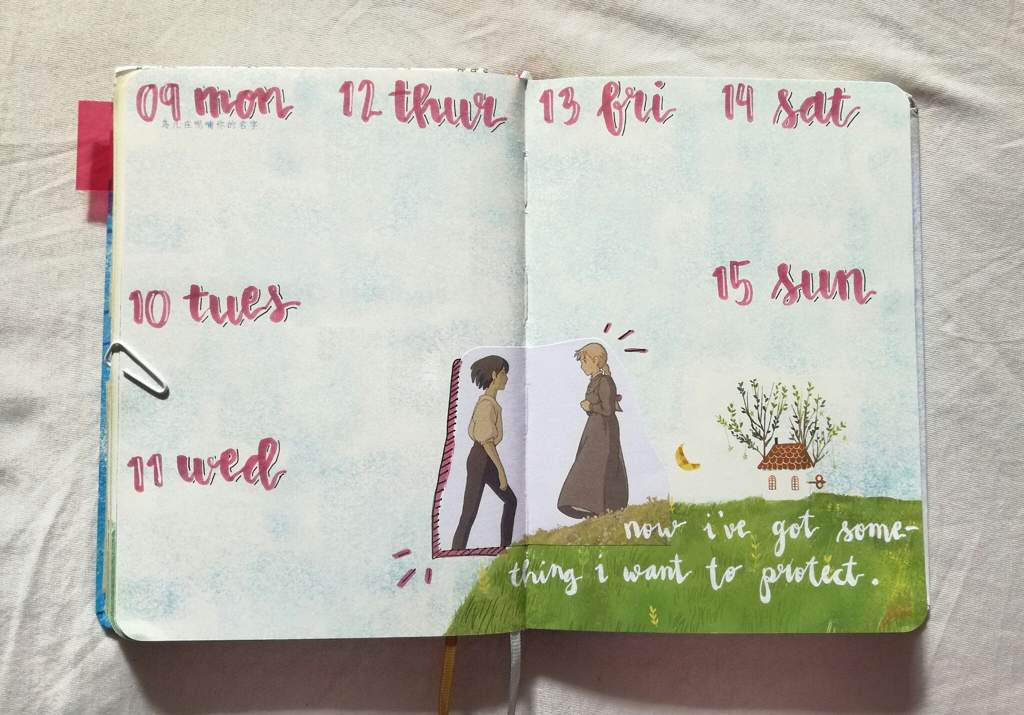 09 mon
鸟儿在呢喃你的名字
10 tues
11 wed
12 thur
13 fri
14 sat
15 sun
now i've got some-
thing i want to protect.